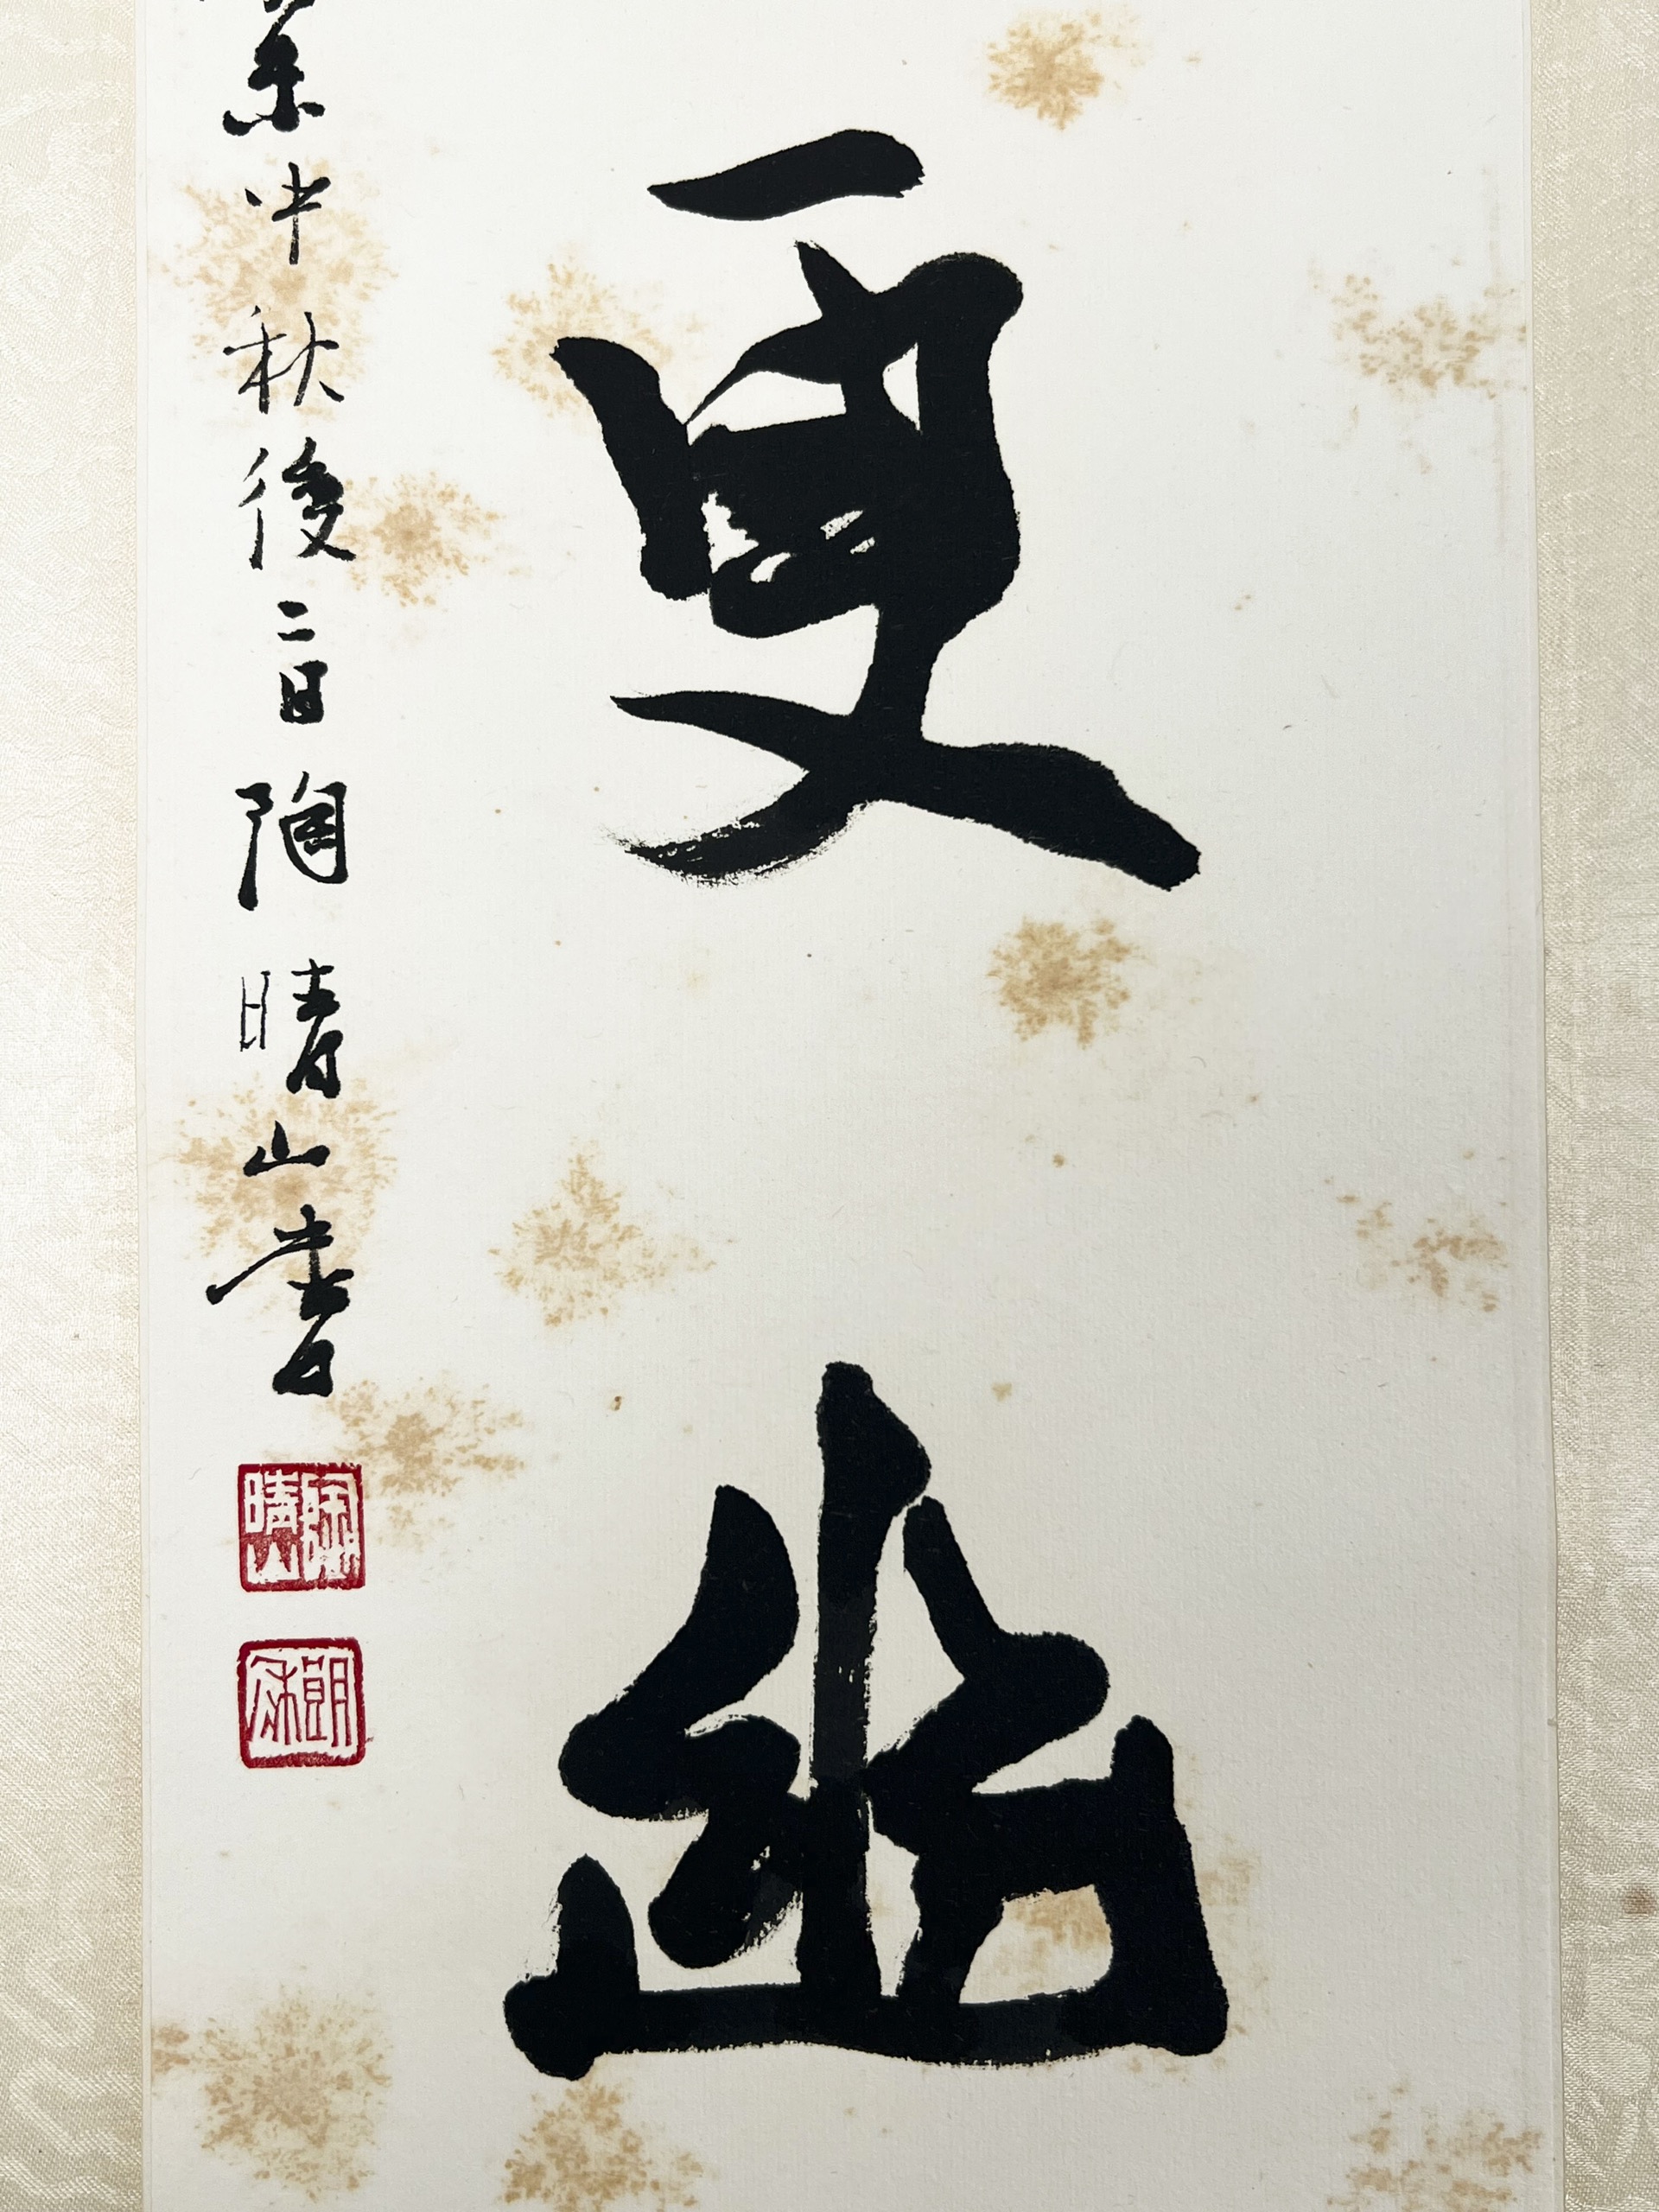 更幽
中秋後二日陶晴山書
陶晴山